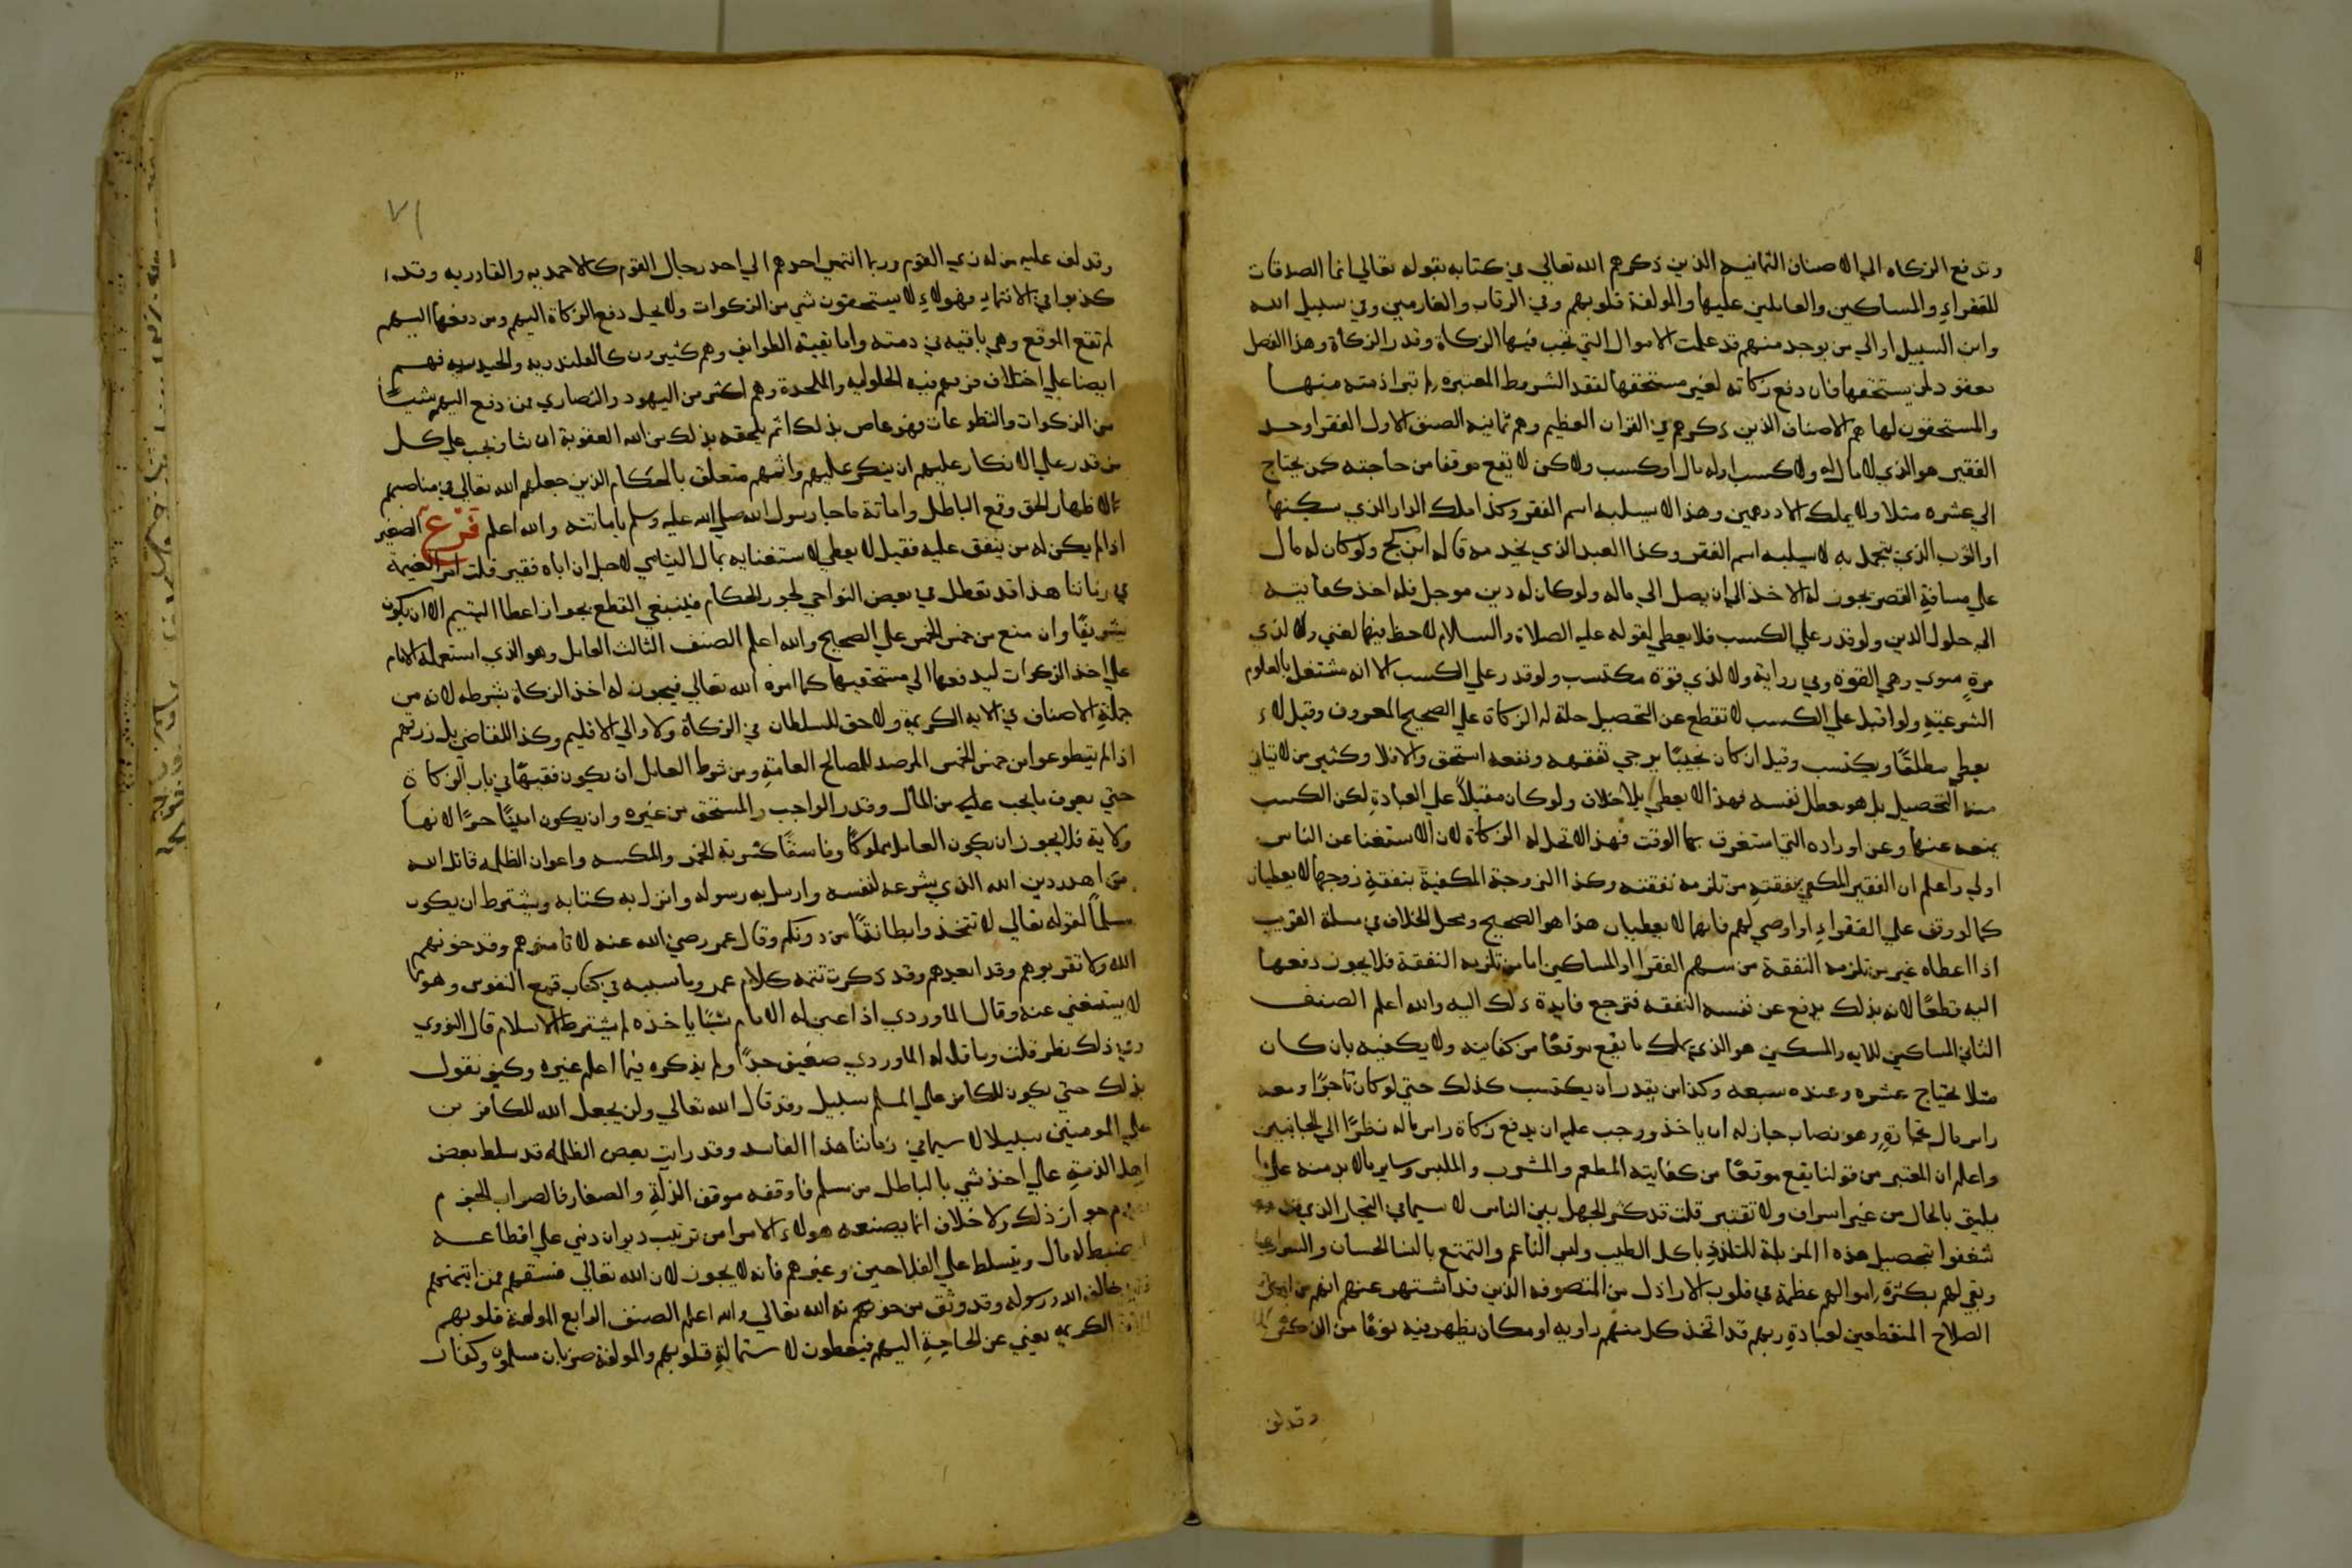 وتدفع الزكاه الي الاصناف الثمانيه الذين ذكرهم الله تعالي في كتابه بقوله تعالي انما الصدقات
للفقراء والمساكين والعاملين عليها والمولفة قلوبهم وفي الرقاب والغارمين وفي سبيل الله
وابن السبيل او الي من يوجد منهم قد علمت الاموال التي تجب فيها الزكاة وقدر الزكاة وهذا الفصل
معقود لمن يستحقها فان دفع زكاته لغير مستحقها لفقد الشروط المعتبرة لم تبرا ذمته منها
والمستحقون لها هم الاصناف الذين ذكرهم في القران العظيم وهم ثمانيه الصنف الاول الفقرا وحد
الفقير هو الذي لا مال له ولا كسب او له مال او كسب ولا كن لا يقع موقعا من حاجته كمن يحتاج
الي عشره مثلا ولا يملك الا درهمين وهذا لا يسلبه اسم الفقر وكذا ملك الدار الذي يسكنها
او الثوب الذي يتجمل به لا يسلبه اسم الفقر وكذا العبد الذي يخدمه قاله ابن كج ولو كان له مال
علي مسافة القصر يجوز له الاخذ الي ان يصل الي ماله ولو كان له دين موجل فله اخذ كفايته
الي حلول الدين ولو قدر علي الكسب فلا يعطي لقوله عليه الصلاة والسلام لا حظ فيها لغني ولا لذي
مرة سوي وهي القوة وفي رواية ولا لذي قوة مكتسب ولو قدر علي الكسب الا انه مشتغل بالعلوم
الشرعية ولو اقبل علي الكسب لانقطع عن التحصيل حلة له الزكاة علي الصحيح المعروف وقيل لا
يعطي مطلقا ويكتسب وقيل ان كان نجيبا يرجي تفقهه ونفعه استحق والا فلا وكثير من لا يتاتي
منه التحصيل بل هو معطل نفسه فهذا لا يعطي بلا خلاف ولو كان مقبلا علي العبادة لكن الكسب
يمنعه عنها وعن اوراده التي استغرق بها الوقت فهذا لا تحل له الزكاة لان الاستغنا عن الناس
اولي واعلم ان الفقير المكفي بنفقة من تلزمه نفقته وكذا الزوجة المكفية بنفقة زوجها لا يعطيان
كما لو وقف علي الفقراء او اوصي لهم فانهما لا يعطيان هذا هو الصحيح ومحل الخلاف في مسلة القريب
اذا اعطاه غير من تلزمه النفقة من سهم الفقرا او المساكين اما من تلزمه النفقة فلا يجوز دفعها
اليه قطعا لانه بذلك يدفع عن نفسه النفقه فترجع فايدة ذلك اليه والله اعلم الصنف
الثاني المساكين للايه والمسكين هو الذي يملك ما يقع موقعا من كفايته ولا يكفيه بان كان
مثلا يحتاج عشره وعنده سبعه وكذا من يقدر ان يكتسب كذلك حتي لو كان تاجرا ومعه
راس مال تجارة وهو نصاب جاز له ان ياخذ ووجب عليه ان يدفع زكاة راس ماله نظرا الي الجانبين
واعلم ان المعتبر من قولنا يقع موقعا من كفايته المطعم والمشرب والملبس وساير ما لا بد منه علي ما
يليق بالحال من غير اسراف ولا تقتير قلت قد كثر الجهل بين الناس لا سيما في التجار الذين
شغفوا بتحصيل هذه المزبلة للتلذذ باكل الطيب ولبس الناعم والتمتع بالنسا الحسان
وبقي لهم بكثرة اموالهم عظمة في قلوب الاراذل من المتصوفه الذين قد اشتهر عنهم انهم من اهل
الصلاح المنقطعين لعبادة ربهم قد اتخذ كل منهم زاويه او مكان يظهر فيه نوعا من الذكر
وقد لف
٧١
وقد لف عليه من له زي القوم وربما انتمي احدهم الي احد رجال القوم كالاحمديه والقادريه وقد
كذبوا في الانتماء فهولاء لا يستحقون شي من الزكوات ولا يحل دفع الزكاة اليهم ومن دفعها اليهم
لم تقع الموقع وهي باقيه في ذمته واما بقيه الطوايف وهم كثيرون كالقلندريه والحيدريه فهم
ايضا علي اختلاف فرقهم فيه الحلوليه والملحدة وهم اكثر من اليهود والنصاري فمن دفع اليهم شيا
من الزكوات والتطوعات فهو عاص بذلك اثم يلحقه بذلك من الله العقوبة ان شا ويجب علي كل
من قدر علي الانكار عليهم ان ينكر عليهم واثمهم متعلق بالحكام الذين جعلهم الله تعالي في مناصبهم
الا ظهار الحق وقمع الباطل واماتة ما جا رسول الله صلي الله عليه وسلم باماتته والله اعلم فرع الصغير
اذا لم يكن له من ينفق عليه فقيل لا يعطي لاستغنايه بمال اليتامي لاجل ان اباه فقير قلت امر الغنيمة
في زماننا هذا قد تعطل في بعض النواحي لجور الحكام فينبغي القطع بجواز اعطا اليتيم الا ان يكون
شريفا وان منع من خمس الخمس علي الصحيح والله اعلم الصنف الثالث العامل وهو الذي استعمله الامام
علي اخذ الزكوات ليدفعها الي مستحقيها كما امره الله تعالي فيجوز له اخذ الزكاة بشرطه لانه من
جملة الاصناف في الايه الكريمة ولا حق للسلطان في الزكاة ولا والي الاقليم وكذا القاضي بل رزقهم
اذا لم يتطوعوا من خمس الخمس المرصد للمصالح العامة ومن شرط العامل ان يكون فقيها في باب الزكاة
حتي يعرف ما يجب عليه من المال وقدر الواجب والمستحق من غيره وان يكون امينا حرا لانها
ولاية فلا يجوز ان يكون العامل مملوكا وفاسقا كشربة الخمر والمكسه واعوان الظلمه قاتل الله
من اهدر دين الله الذي شرعه لنفسه وارسل به رسوله وانزل به كتابه ويشترط ان يكون
مسلما لقوله تعالي لا تتخذوا بطانة من دونكم وقال عمر رضي الله عنه لا تامنوهم وقد خونهم
الله ولا تقربوهم وقد ابعدهم وقد ذكرت تتمه كلام عمر وما سببه في كتاب قمع النفوس وهو مما
لا يستغني عنه وقال الماوردي اذا عين له الامام شيا ياخذه لم يشترط الاسلام قال النووي
وفي ذلك نظر قلت وما قاله الماوردي ضعيف جدا ولم يذكره فيما اعلم غيره وكيف نقول
بذلك حتي يكون للكافر علي المسلم سبيل وقد قال الله تعالي ولن يجعل الله للكافرين
علي المومنين سبيلا لا سيما في زماننا هذا الفاسد وقد رايت بعض الظلمه قد سلط بعض
اهل الذمة علي اخذ شي بالباطل من مسلم فاوقفه موقف الذلة والصغار فالصواب الجزم
جواز ذلك ولا خلاف انما يصنعه هولاء الامرا من ترتيب ديوان ذمي علي اقطاعه
يضبط له مال ويتسلط علي الفلاحين وغيرهم فانه لا يجوز لان الله تعالي فسقهم فمن ايتمنهم
خالف الله ورسوله وقد وثق من خونهم الله تعالي والله اعلم الصنف الرابع المولفة قلوبهم
الكريمه يعني عن الحاجة اليهم فيعطون لاستمالة قلوبهم والمولفة ضربان مسلمون وكفار